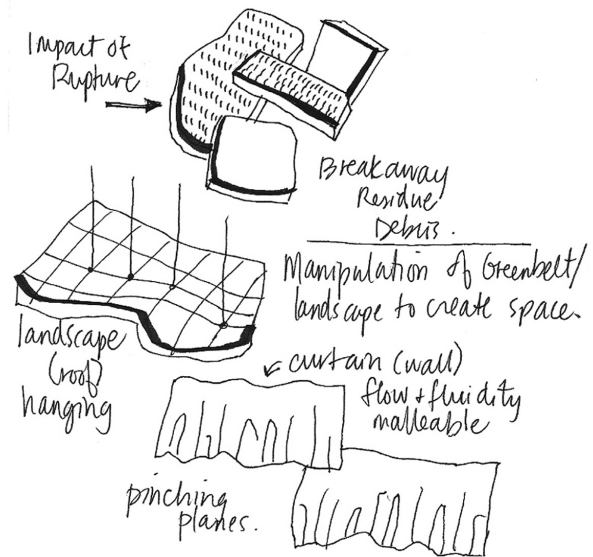 Impact of
Rupture
Breakaway
Residue
Debris.
Manipulation of Greenbelt/
landscape to create space.
landscape
(roof)
hanging
curtain (wall)
flow + fluidity
malleable
pinching
planes.